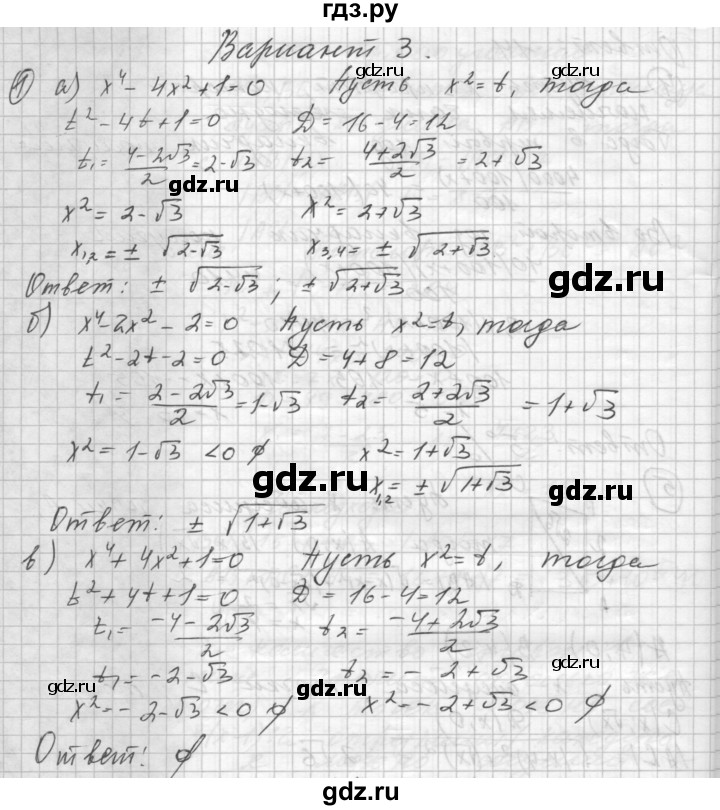 гдз.ру
Вариант 3.
① а) x⁴ - 4x² + 1 = 0 Пусть x² = t, тогда
t² - 4t + 1 = 0 D = 16 - 4 = 12
t₁ = (4 - 2√3)/2 = 2 - √3 t₂ = (4 + 2√3)/2 = 2 + √3
gdz.ru
x² = 2 - √3 x² = 2 + √3
x₁,₂ = ± √(2 - √3) x₃,₄ = ± √(2 + √3)
Ответ: ± √(2 - √3) ; ± √(2 + √3)
gdz.ru
б) x⁴ - 2x² - 2 = 0 Пусть x² = t, тогда
t² - 2t - 2 = 0 D = 4 + 8 = 12
t₁ = (2 - 2√3)/2 = 1 - √3 t₂ = (2 + 2√3)/2 = 1 + √3
x² = 1 - √3 < 0 ∅ x² = 1 + √3
gdz.ru
x₁,₂ = ± √(1 + √3)
gdz.ru
Ответ: ± √(1 + √3)
в) x⁴ + 4x² + 1 = 0 Пусть x² = t, тогда
t² + 4t + 1 = 0 D = 16 - 4 = 12
t₁ = (-4 - 2√3)/2 t₂ = (-4 + 2√3)/2
t₁ = -2 - √3 t₂ = - 2 + √3
gdz.ru
x² = - 2 - √3 < 0 ∅ x² = - 2 + √3 < 0 ∅
Ответ: ∅
gdz.ru
gdz.ru